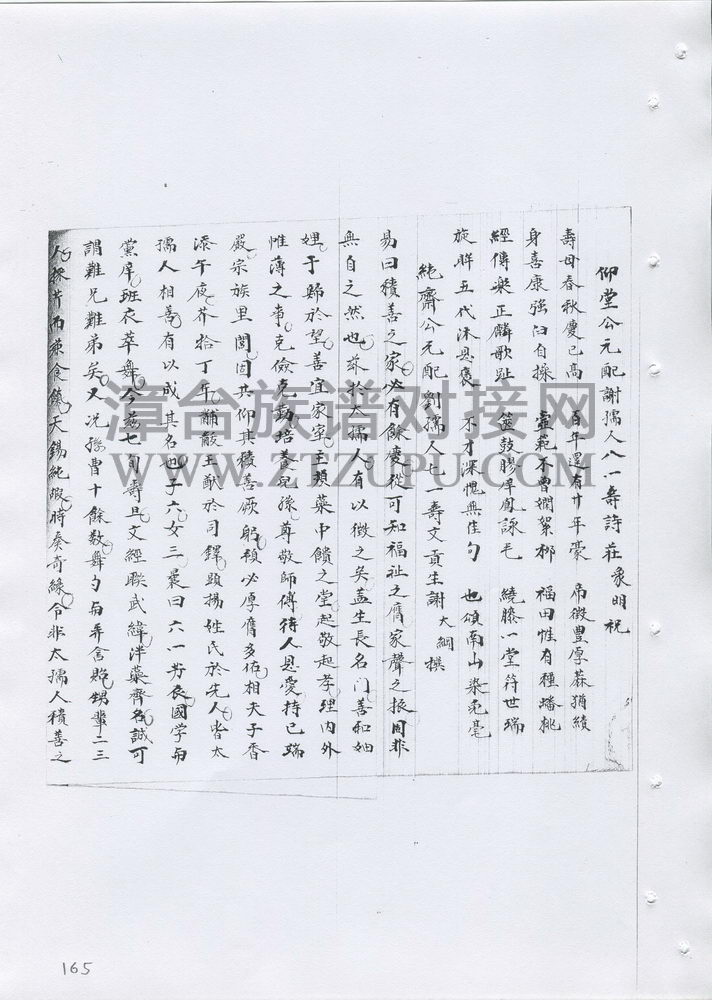 仰堂公元配謝孺人八一壽詩 莊象明祝
壽母春秋慶已高 百年還有廿年豪 帛徵豐厚蔴猶績
身喜康強臼自操 壼範不曾嫻絮柳 福田惟有種蟠桃
經傳樂正麟歌趾 筮鼓膠庠鳳詠毛 繞膝一堂符世瑞
旋眸五代沐恩褒 不才深愧無佳句 也頌南山染兔毫
純齋公元配劉孺人七一壽文 貢生謝大綱撰
易曰積善之家必有餘慶從可知福祉之膺家聲之振固非
無自之然也茲於太孺人有以徵之矣蓋生長名門善和妯
娌于歸於望善宜家室主蘋藻中饋之堂起敬起孝理內外
惟薄之事克儉克勤培養兒孫尊敬師傅待人恩愛持己端
嚴宗族里閭固共仰其積善厥躬積必厚膺多佑相夫子香
添午夜芥拾丁年黼黻王猷於司鐸顯揚姓氏於先人皆太
孺人相善有以成其名也子六女三曩曰六一芳辰國学与
黨庠班衣萃舞今茲七旬壽旦文經聯武緯泮藻齊名誠可
謂難兄難弟矣又況孫曾十餘数舞勺与弄含飴甥輩二三
人採芹而兼食餼天錫純嘏時癸奇緣令非太孺人積善之
漳台族谱对接网
WWW.ZTZUPU.COM
165